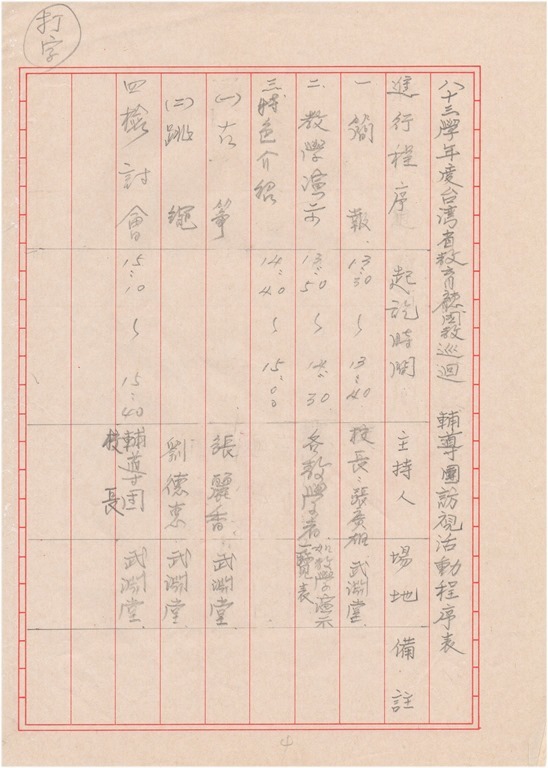 打字
八十三學年度台湾省教育廳國教巡迴 輔導團訪視活動程序表
進行程序 起訖時間 主持人 場地 備註
一 簡報 13:30 ~ 13:40 校長:張 武淵堂
二、教學演示 13:50 ~ 14:30 各教學者 如教學演示一覽表
三特色介紹 14:40 ~ 15:00
(一)古箏 張麗香 武淵堂
(二)跳繩 劉德惠 武淵堂
四檢討會 15:10 ~ 15:40 輔導團 校長 武淵堂
4